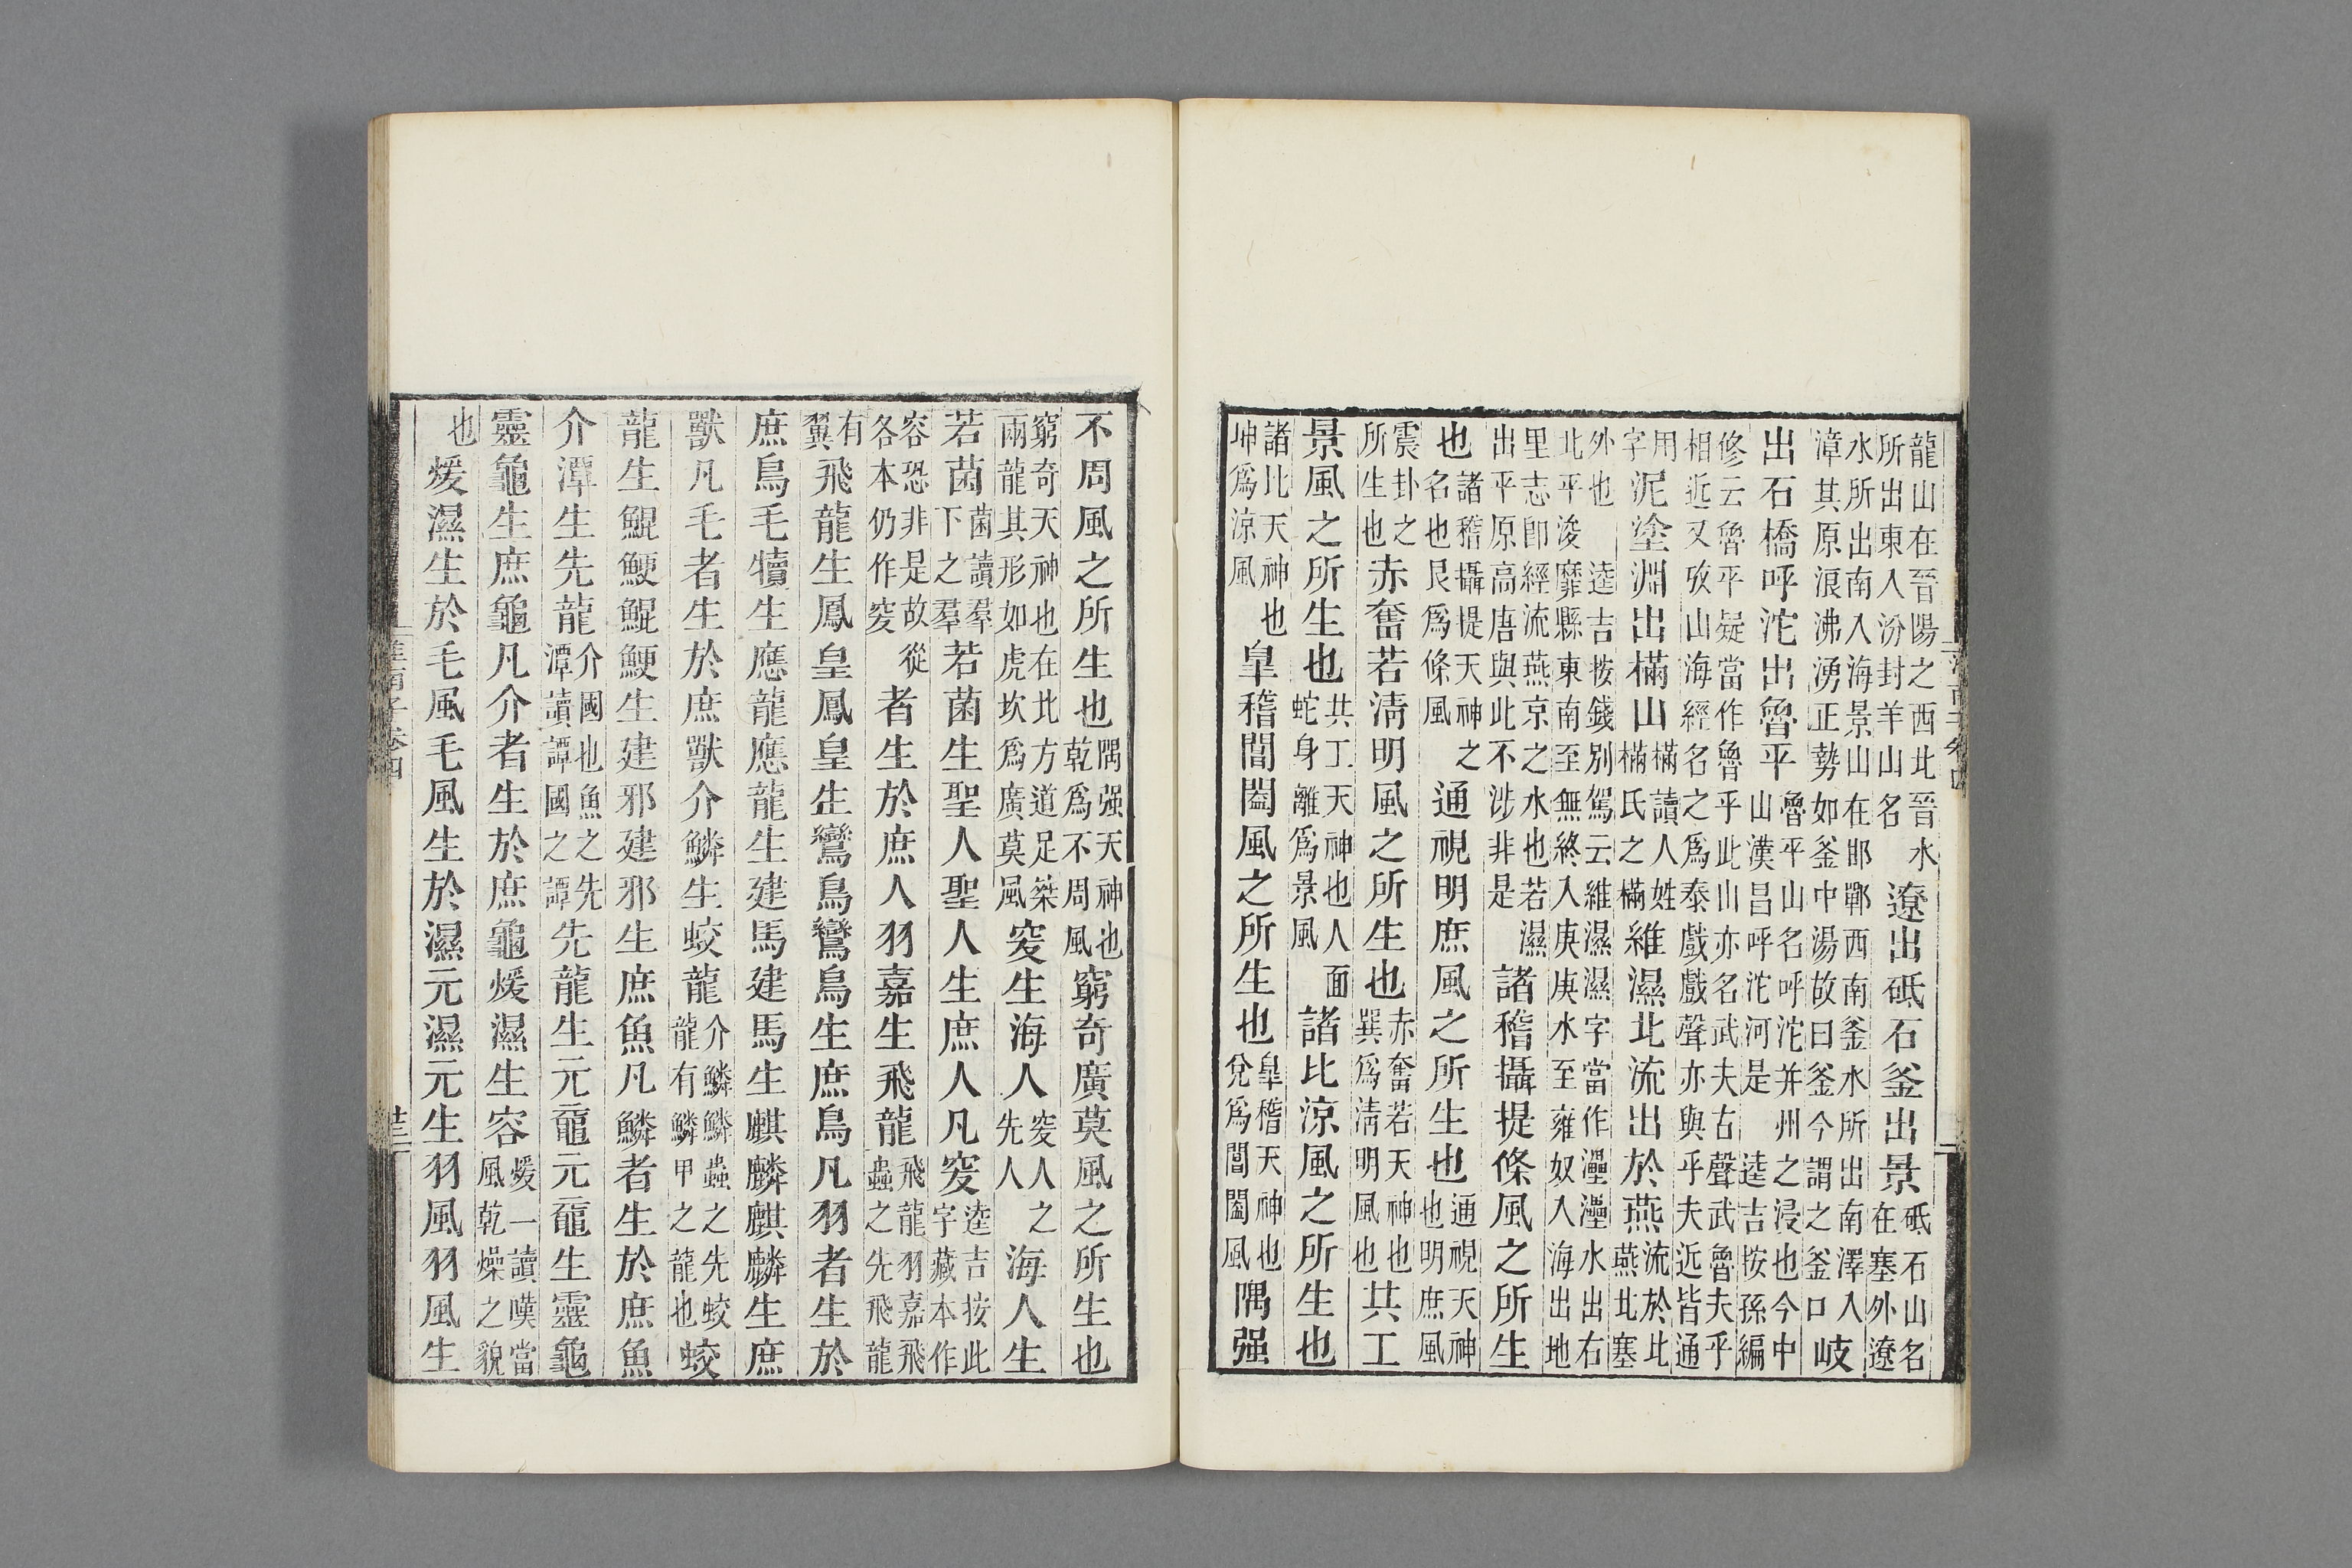 龍山在晉陽之西北晉水所出東入汾封羊山名遼出砥石釜出景砥石山名在塞外遼
水所出南入海景山在邯鄲西南釜水所出南澤入漳其原浪沸湧正勢如釜中湯故曰釜今謂之釜口岐
出石橋呼沱出魯平魯平山名呼沱并州之浸也今中山漢昌呼沱河是逵吉按孫編
修云魯平疑當作魯乎此山亦名武夫古聲武魯夫乎相近又攷山海經名之爲泰戲戲聲亦與乎夫近皆通
用字泥塗淵出樠山樠讀人姓樠氏之樠維濕北流出於燕流於北燕北塞
外也逵吉按錢別駕云維濕濕字當作灅灅水出右北平浚靡縣東南至無終入庚庚水至雍奴入海出地
里志卽經流燕京之水也若濕出平原高唐與此不涉非是諸稽攝提條風之所生
也諸稽攝提天神之名也艮爲條風通視明庶風之所生也通視天神也明庶風
震卦之所生也赤奮若淸明風之所生也赤奮若天神也巽爲淸明風也共工
景風之所生也共工天神也人面蛇身離爲景風諸比涼風之所生也
諸比天神也坤爲涼風皐稽閶闔風之所生也皐稽天神也兌爲閶闔風隅强
不周風之所生也隅强天神也乾爲不周風窮奇廣莫風之所生也
窮奇天神也在北方道足桀兩龍其形如虎坎爲廣莫風窔生海人窔人之先人海人生
若菌菌讀羣下之羣若菌生聖人聖人生庶人凡窔逵吉按此字藏本作
容恐非是故從各本仍作窔者生於庶人羽嘉生飛龍飛龍羽嘉飛蟲之先飛龍
有翼飛龍生鳳皇鳳皇生鸞鳥鸞鳥生庶鳥凡羽者生於
庶鳥毛犢生應龍應龍生建馬建馬生麒麟麒麟生庶
獸凡毛者生於庶獸介鱗生蛟龍介鱗鱗蟲之先蛟龍有鱗甲之龍也蛟
龍生鯤鯁鯤鯁生建邪建邪生庶魚凡鱗者生於庶魚
介潭生先龍介國也魚之先潭讀譚國之譚先龍生元黿元黿生靈龜
靈龜生庶龜凡介者生於庶龜煖濕生容煖一讀嘆當風乾燥之貌
也煖濕生於毛風毛風生於濕元濕元生羽風羽風生